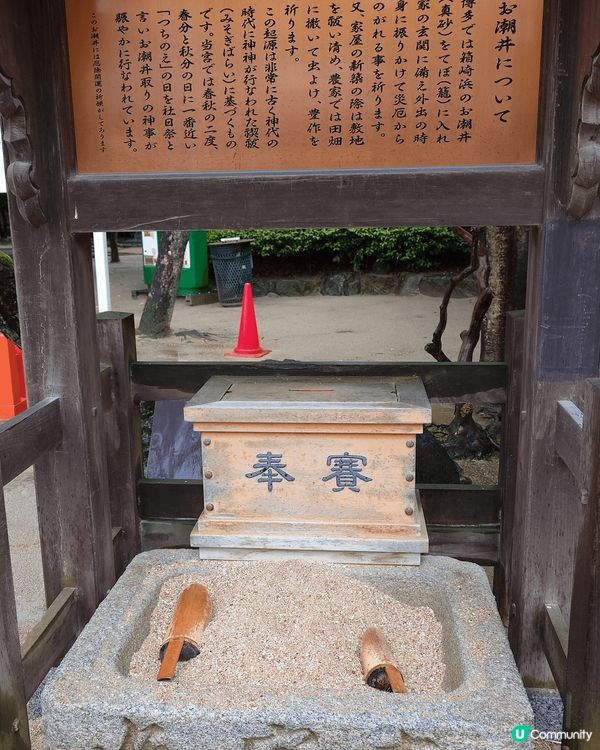 お潮井について
博多では箱崎浜のお潮井
（真砂）をてぼ（籠）に入れ
家の玄関に備え外出の時
身に振りかけて災厄から
のがれる事を祈ります。
又家屋の新築の際は敷地
を祓い清め、農家では田畑
に撒いて虫よけ、豊作を
祈ります。
この起源は非常に古く神代の
時代に神神が行なわれた禊祓
（みそぎばらい）に基づくもの
です。当宮では春秋の二度、
春分と秋分の日に一番近い
「つちのえ」の日を社日祭と
言いお潮井取りの神事が
賑やかに行なわれています。
このお潮井には厄除開運の祈願がしてあります
奉賽
U Community